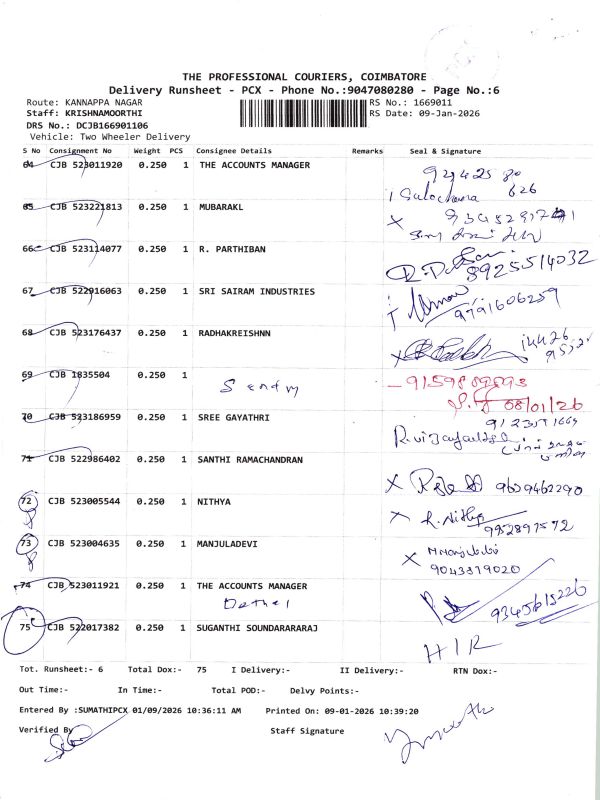 THE PROFESSIONAL COURIERS, COIMBATORE
Delivery Runsheet - PCX - Phone No.:9047080280 - Page No.:6
Route: KANNAPPA NAGAR RS No.: 1669011
Staff: KRISHNAMOORTHI RS Date: 09-Jan-2026
DRS No.: DCJB166901106
Vehicle: Two Wheeler Delivery
S No Consignment No Weight PCS Consignee Details Remarks Seal & Signature
64 CJB 523011920 0.250 1 THE ACCOUNTS MANAGER
626
65 CJB 523221813 0.250 1 MUBARAKL
X
66 CJB 523114077 0.250 1 R. PARTHIBAN
8925514032
67 CJB 522916063 0.250 1 SRI SAIRAM INDUSTRIES
9791606259
68 CJB 523176437 0.250 1 RADHAKREISHNN
X
69 CJB 1835504 0.250 1
08/01/26
70 CJB 523186959 0.250 1 SREE GAYATHRI
71 CJB 522986402 0.250 1 SANTHI RAMACHANDRAN
X 9629462290
72 CJB 523005544 0.250 1 NITHYA
X R. Nithya
9952897572
73 CJB 523004635 0.250 1 MANJULADEVI
X
9043379020
74 CJB 523011921 0.250 1 THE ACCOUNTS MANAGER
9345615226
75 CJB 522017382 0.250 1 SUGANTHI SOUNDARARARAJ
Tot. Runsheet:- 6 Total Dox:- 75 I Delivery:- II Delivery:- RTN Dox:-
Out Time:- In Time:- Total POD:- Delvy Points:-
Entered By :SUMATHIPCX 01/09/2026 10:36:11 AM Printed On: 09-01-2026 10:39:20
Verified By Staff Signature